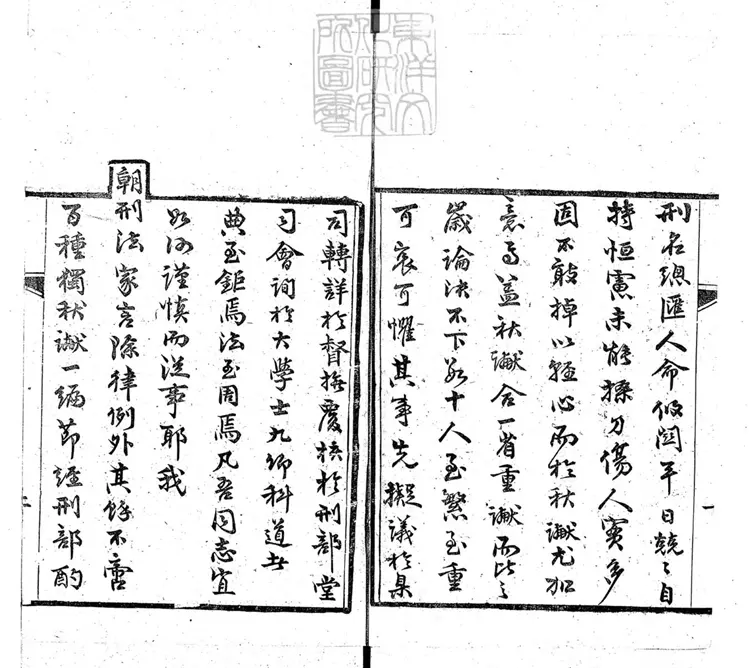 東洋文
化研究
所圖書
刑名總匯人命攸關平日兢〻自
持恒慮未能操刀傷人實多
固不敢掉以輕心而於秋讞尤加
意焉蓋秋讞合一省重讞而比之
歲論決不下數十人至繁至重
可哀可懼其事先擬議於臬
司轉詳於督撫覆核於刑部堂
司會詢於大學士九卿科道
典至鉅焉法至周焉凡吾同志宜
如何謹慎而從事耶我
朝刑法家言除律例外其餘不啻
百種獨秋讞一編節經刑部酌